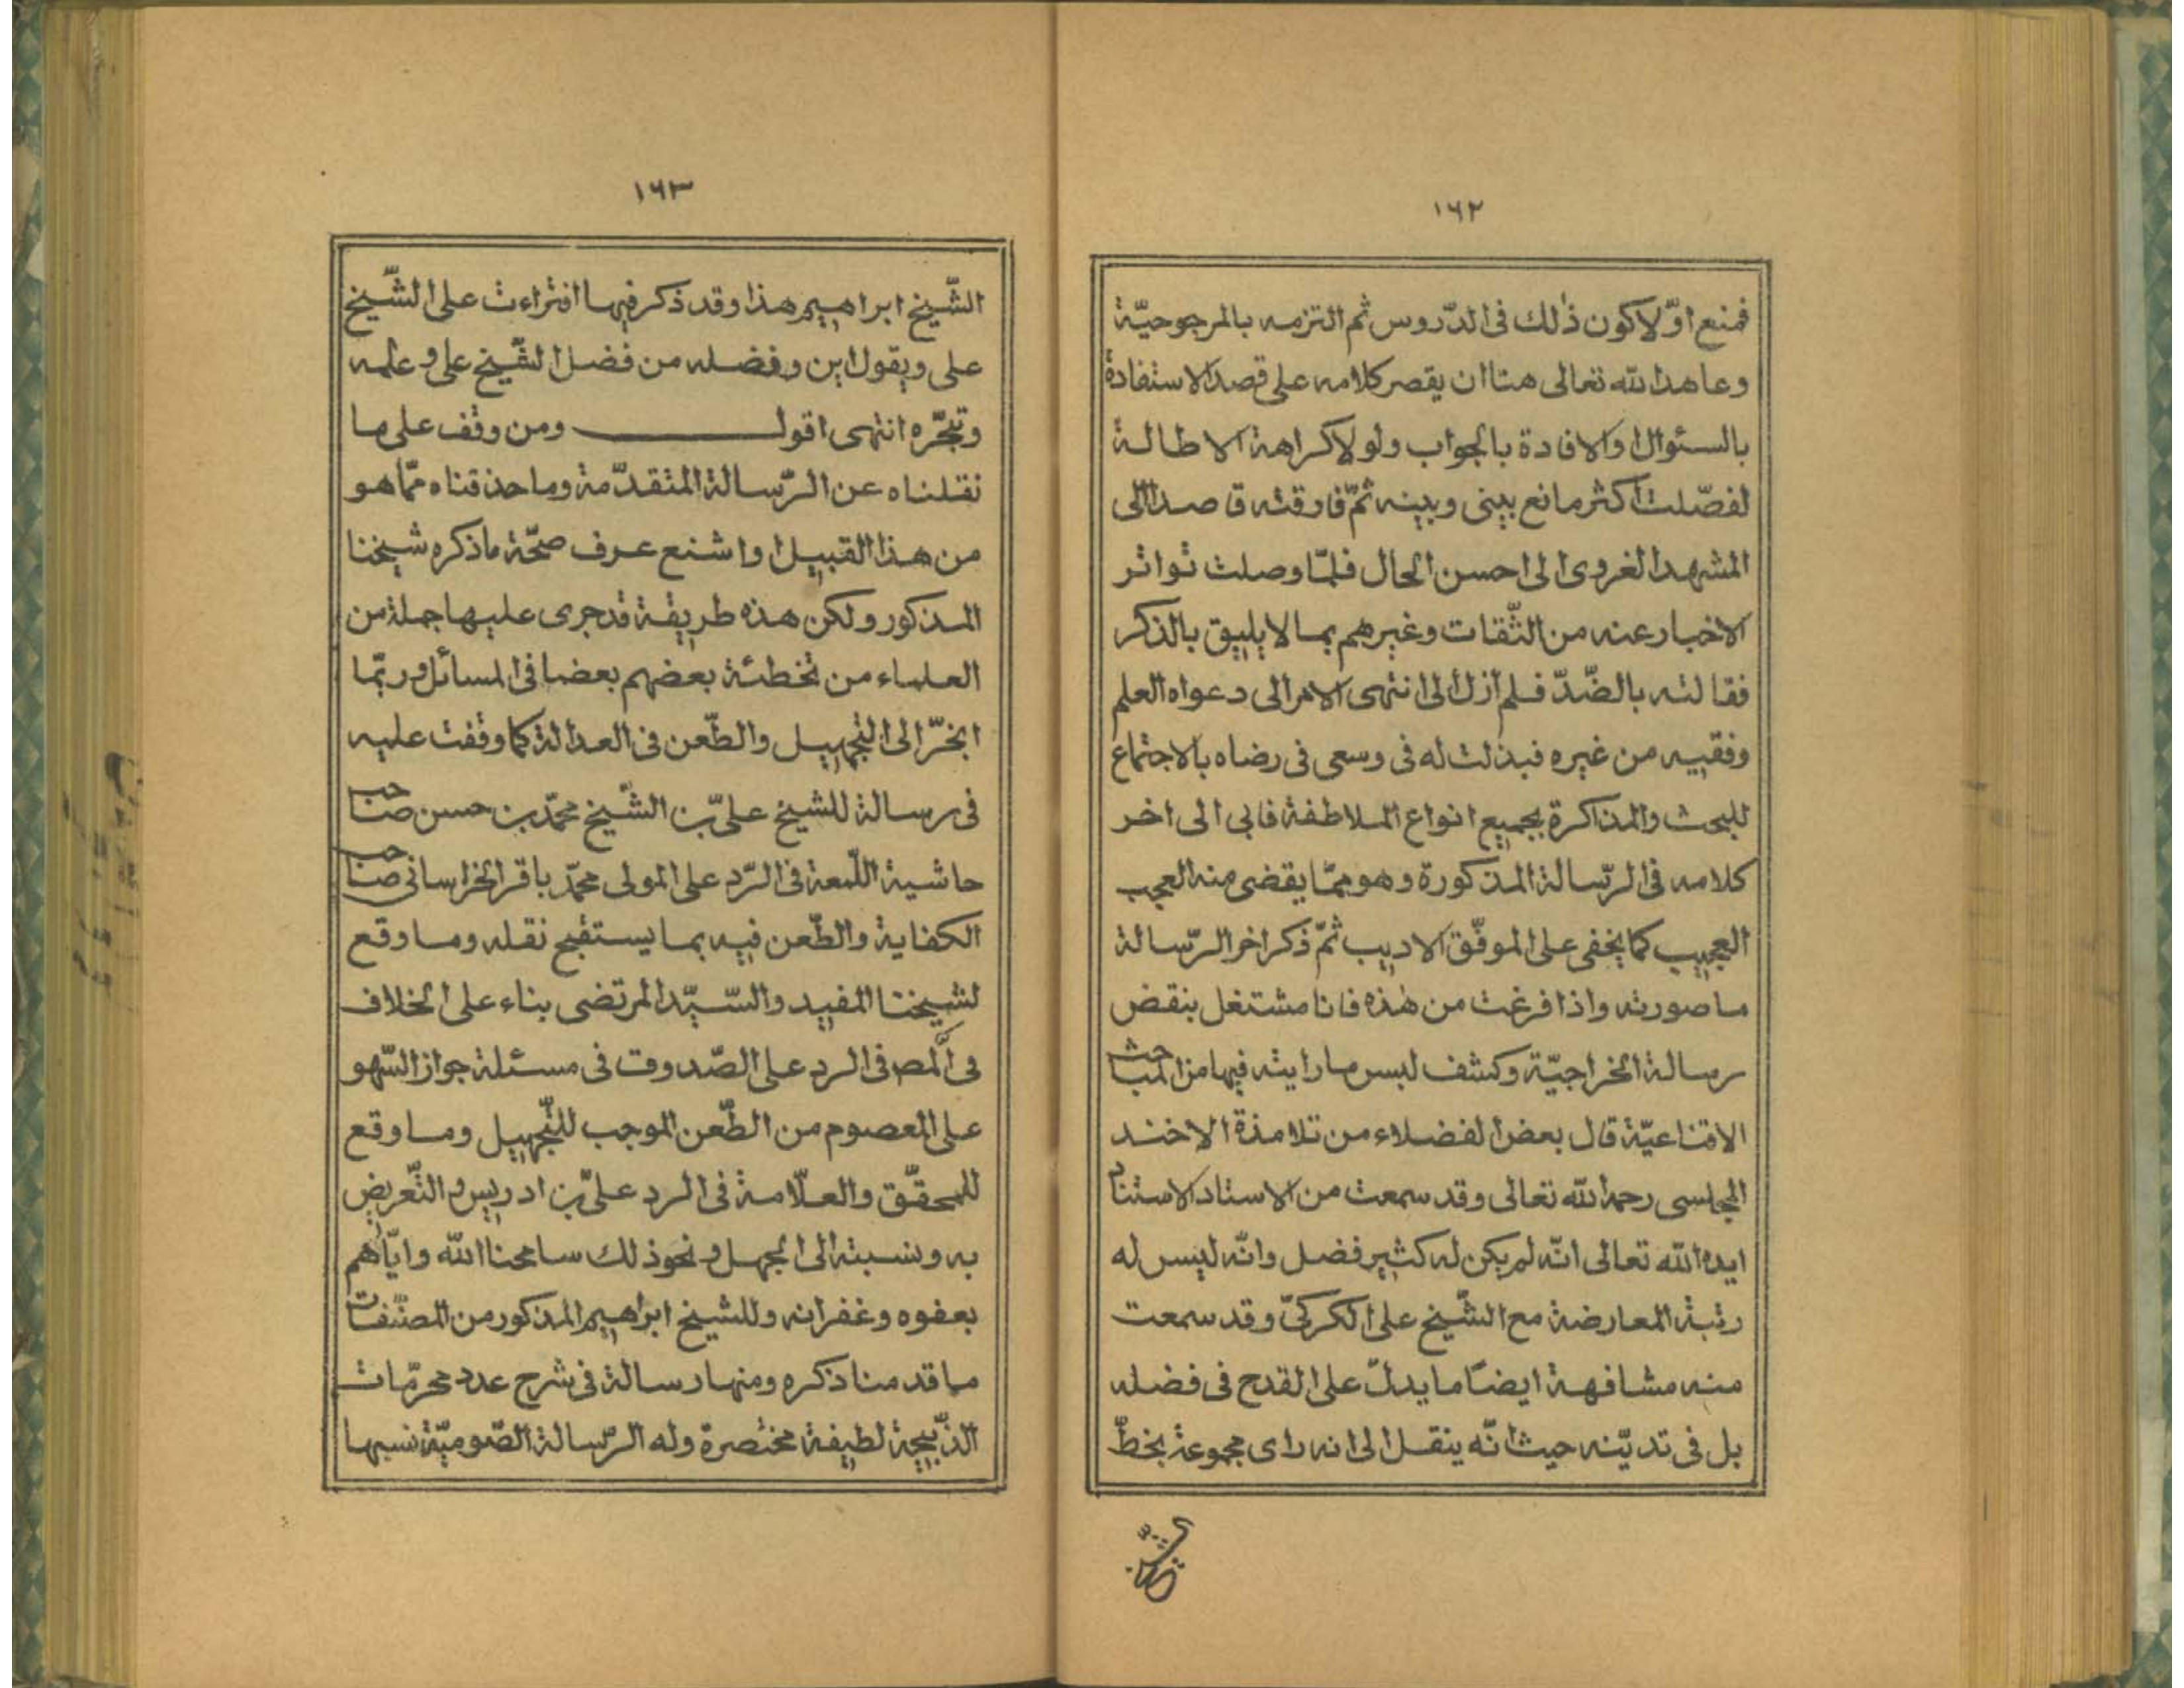 ١٦٢
فمنع اوّلا كون ذلك فى الدّروس ثم التزمه بالمرجوحيّة
وعاهد الله تعالى هنا ان يقصر كلامه على قصد الاستفادة
بالسئوال والافادة بالجواب ولو لا كراهة الاطالة
لفصّلت اكثر ما نع بينى وبينه ثمّ فارقته قاصدا الى
المشهد الغروى الى احسن الحال فلمّا وصلت تواتر
الاخبار عنه من الثّقات وغيرهم بما لا يليق بالذكر
فقالته بالضّدّ فلم أزل الى انتهى الامر الى دعواه العلم
وفقيه من غيره فبذلت له فى وسعى فى رضاه بالاجتماع
للبحث والمذاكرة بجميع انواع الملاطفة فابى الى اخر
كلامه فى الرّسالة المذكورة وهو ممّا يقضى منه العجب
العجيب كما يخفى على الموفّق الاديب ثمّ ذكر اخر الرّسالة
ما صورته واذا فرغت من هذه فانا مشتغل بنقض
رسالة الخراجيّة وكشف لبس ما رايته فيها من المباحث
الاقناعيّة قال بعض الفضلاء من تلامذة الاخند
المجلسى رحمه الله تعالى وقد سمعت من الاستاد الاستناد
ايده الله تعالى انّه لم يكن له كثير فضل وانّه ليس له
رتبة المعارضة مع الشّيخ على الكركىّ وقد سمعت
منه مشافهة ايضا ما يدلّ على القدح فى فضله
بل فى تديّنه حيث انّه ينقل الى انه راى مجموعة بخطّ
الشّيخ
١٦٣
الشّيخ ابراهيم هذا وقد ذكر فيها افتراءت على الشّيخ
على ويقول اين وفضله من فضل الشّيخ على و علمه
وتبحّره انتهى اقول ومن وقف على ما
نقلناه عن الرّسالة المتقدّمة وما حذقناه ممّا هو
من هذا القبيل او اشنع عرف صحّة ما ذكره شيخنا
المذكور ولكن هذه طريقة قد جرى عليها جملة من
العلماء من تخطئة بعضهم بعضا فى المسائل و ربّما
انجرّ الى التجهيل والطّعن فى العدالة كما وقفت عليه
فى رسالة للشيخ علىّ بن الشّيخ محمّد بن حسن صاحب
حاشية اللّمعة فى الرّد على المولى محمّد باقر الخراسانى صاحب
الكفاية والطّعن فيه بما يستقبح نقله وما وقع
لشيخنا المفيد والسّيّد المرتضى بناء على الخلاف
فى المص فى الرد على الصّدوق فى مسئلة جواز السّهو
على المعصوم من الطّعن الموجب للتّجهيل وما وقع
للمحقّق والعلّامة فى الرد علىّ بن ادريس و التّعريض
به ونسبته الى الجهل و نحو ذلك سامحنا الله وايّاهم
بعفوه وغفرانه وللشيخ ابراهيم المذكور من المصنّفات
ما قد منا ذكره ومنها رسالة فى شرح عدد محرّمات
الذّبيحة لطيفة مختصرة وله الرّسالة الصّوميّة نسبها